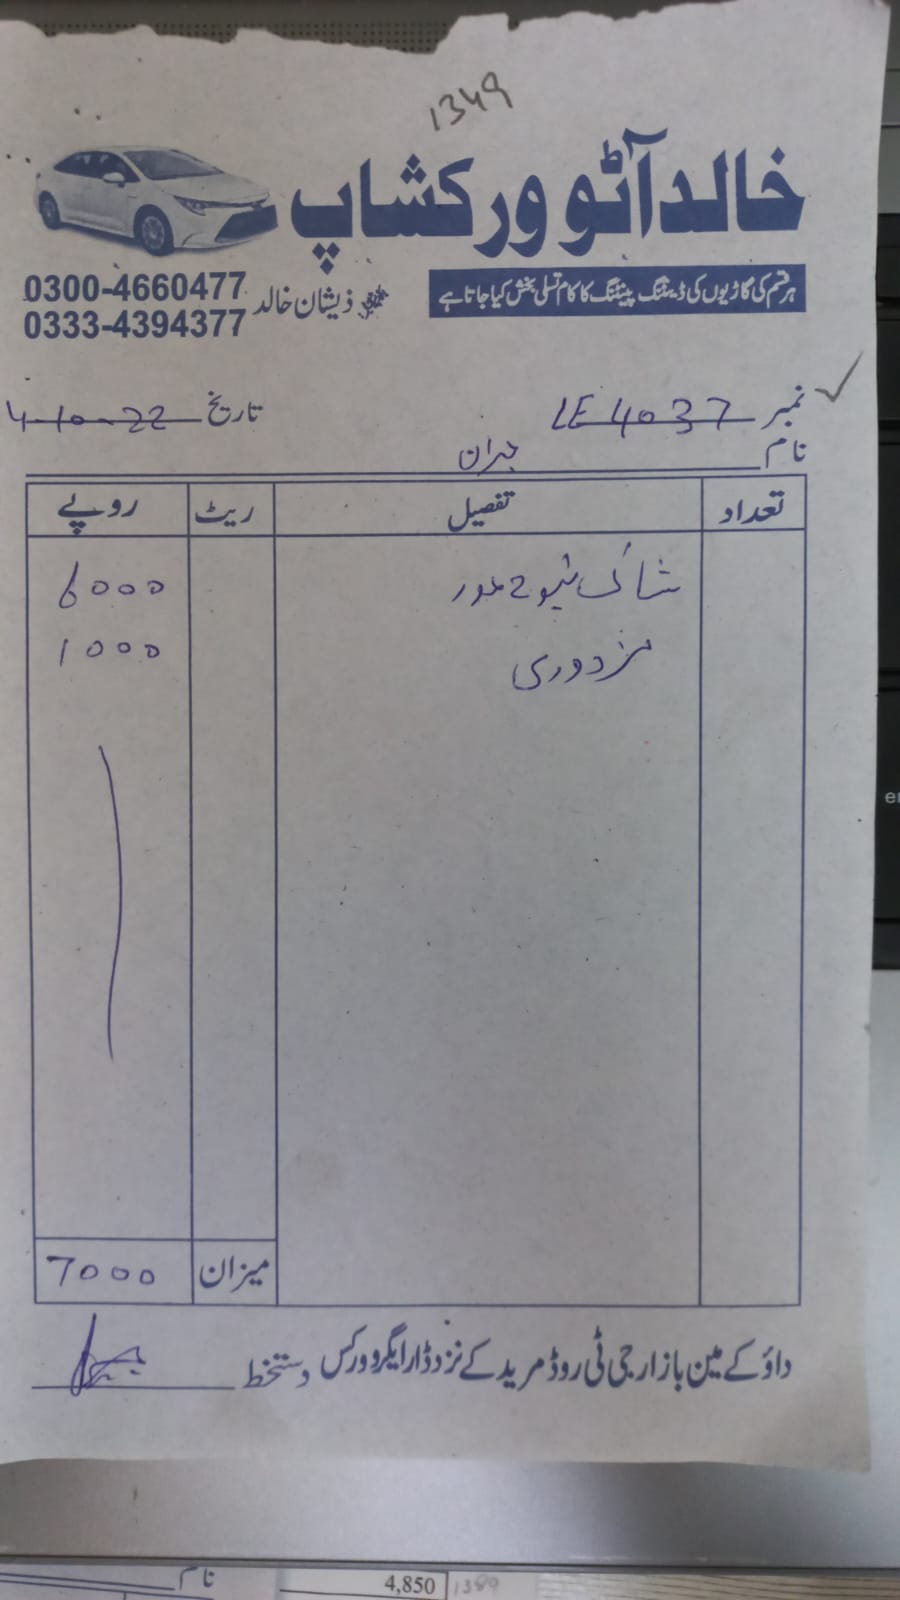 1349
خالد آٹو ورکشاپ
ہر قسم کی گاڑیوں کی ڈینٹنگ پینٹنگ کا کام تسلی بخش کیا جاتا ہے
ذیشان خالد
0300-4660477
0333-4394377
نمبر LE 4037 تاریخ 4-10-22
نام جبران
تعداد تفصیل ریٹ روپے
شاک ٹیو 2 عدد 6000
مزدوری 1000
میزان 7000
داؤ کے مین بازار جی ٹی روڈ مرید کے نزد ڈار ایگرو ورکس دستخط
نام
4,850 1389